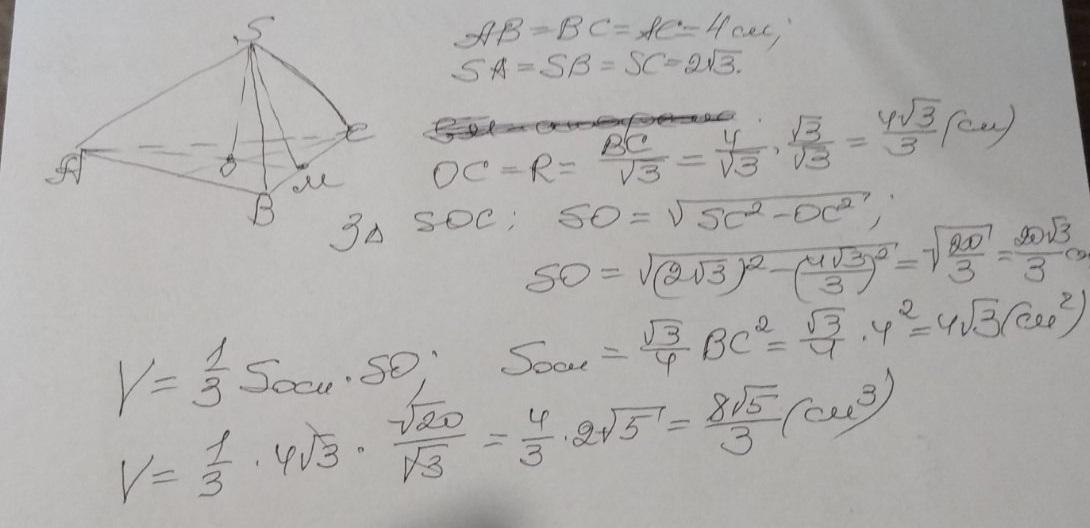 S
A
O
C
M
B
AB = BC = AC = 4 см;
SA = SB = SC = 2√3.
OC = R = BC/√3 = 4/√3 · √3/√3 = 4√3/3 (см)
З Δ SOC; SO = √(SC² - OC²);
SO = √((2√3)² - (4√3/3)²) = √(20/3) = 20√3/3 см
V = 1/3 Sосн · SO; Sосн = √3/4 BC² = √3/4 · 4² = 4√3 (см²)
V = 1/3 · 4√3 · √20/√3 = 4/3 · 2√5 = 8√5/3 (см³)